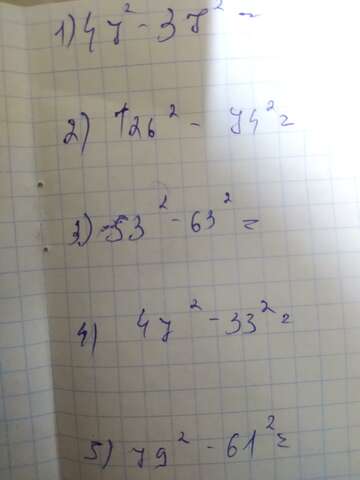 1) 47² - 37² =
2) 126² - 74² =
3) 53² - 63² =
4) 47² - 33² =
5) 79² - 61² =